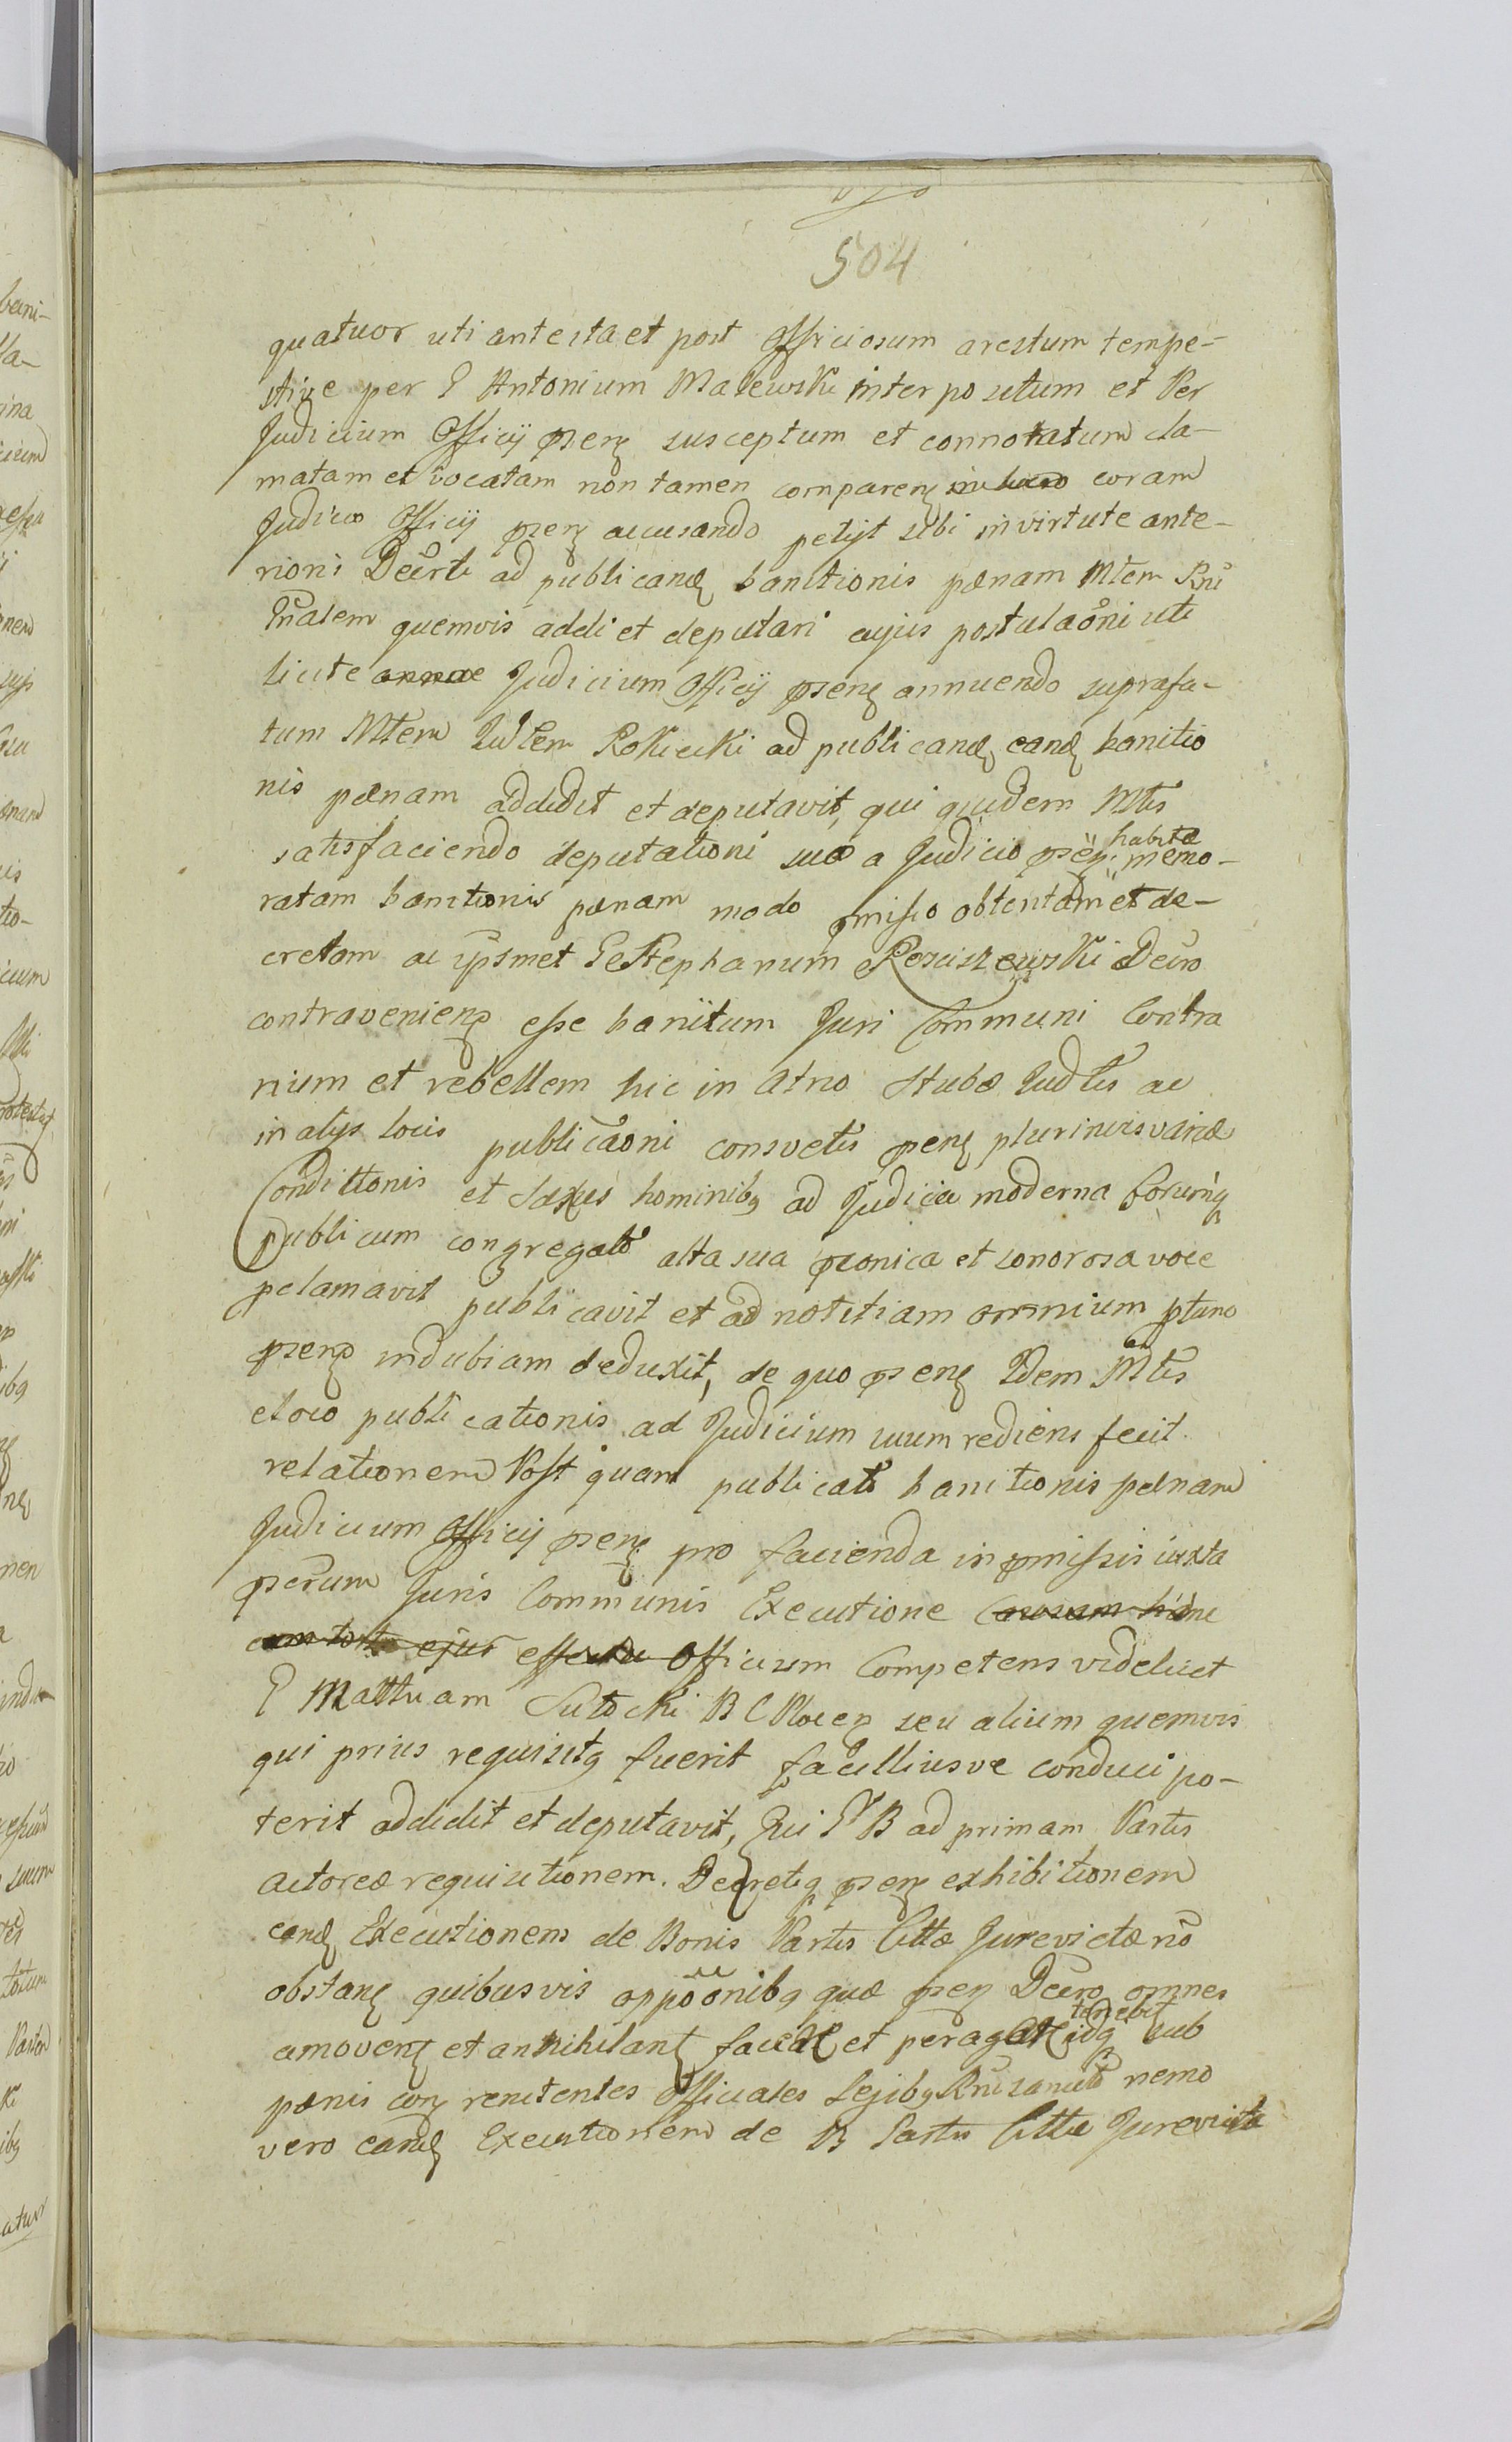 504
quatuor uti antesta et post Officiosum arestum tempe-
stive per G Antonium Malewski interpositum et Per
Judicium Officij psen susceptum et connotatum cla-
matam et vocatam non tamen comparen in coram
Judicio Officij psen accusando petijt sibi in virtute ante-
riori Decrti ad publicand banitionis pænam Mtem Rni
Gnalem quemvis addi et deputari cujus postulaoni uti
licite Judicium Officij psen annuendo suprafa-
tum Mtem Judlem Rokicki ad publicand eand banitio
nis pænam addidit et deputavit, qui quidem Mtis
satisfaciendo deputationi suæ a Judicio psen habitæ memo-
ratam banitionis pænam modo pmisso obtentam et de-
cretam ac ipsmet G Stephanum Rosciszewski Decro
contravenien esse banitum Juri Communi Contra
rium et rebellem hic in Atrio Stubæ Judlis ac
in alijs locis publicaoni consvetis psen plurimis variæ
Conditionis et Sexus hominibq ad Judicia moderna forumq
publicum congregato alta sua pconica et sonorosa voce
pclamavit publicavit et ad notitiam omnium ptunc
psen indubiam deduxit, de quo psen Idem Mtis
eloco publicationis ad Judicium suum rediens fecit
relationem Post quam publicato banitionis pænam
Judicium Officij psen pro facienda in pmissis iuxta
pscrum Juris Communis Executione Causam hanc
cum toto ejus effectu Officium Competens videlicet
G Matthiam Sutocki B C Plocen seu alium quemvis
qui prius requisitq fuerit facilliusve conduci po-
terit addidit et deputavit, Qui G B ad primam Partis
Actoreæ requisitionem. Decretiq psen exhibitionem
eand Executionem de Bonis Partis Cittæ Jurevictæ no
obstan quibusvis oppoonibq quæ psen Decro omnes
amoven et annihilan faciat et peragat tenebit idq sub
pænis con renitentes Officiales Legibq Rni sancito nemo
vero eand Executionem de B Partis Cittæ Jurevictæ